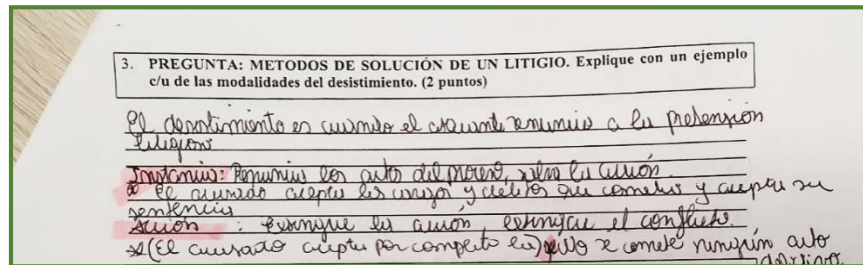 3. PREGUNTA: METODOS DE SOLUCIÓN DE UN LITIGIO. Explique con un ejemplo
c/u de las modalidades del desistimiento. (2 puntos)
El desistimiento es cuando el renuncia a la pretensión
litigiosa
Instancia: Renuncia los acto del proceso, salva la acción
* El acusado acepta los cargos y delitos que cometio y acepta su
sentencia
Acción: extingue la acción, extingue el conflicto.
* (El acusado acepta por completo la) se comete ningún acto